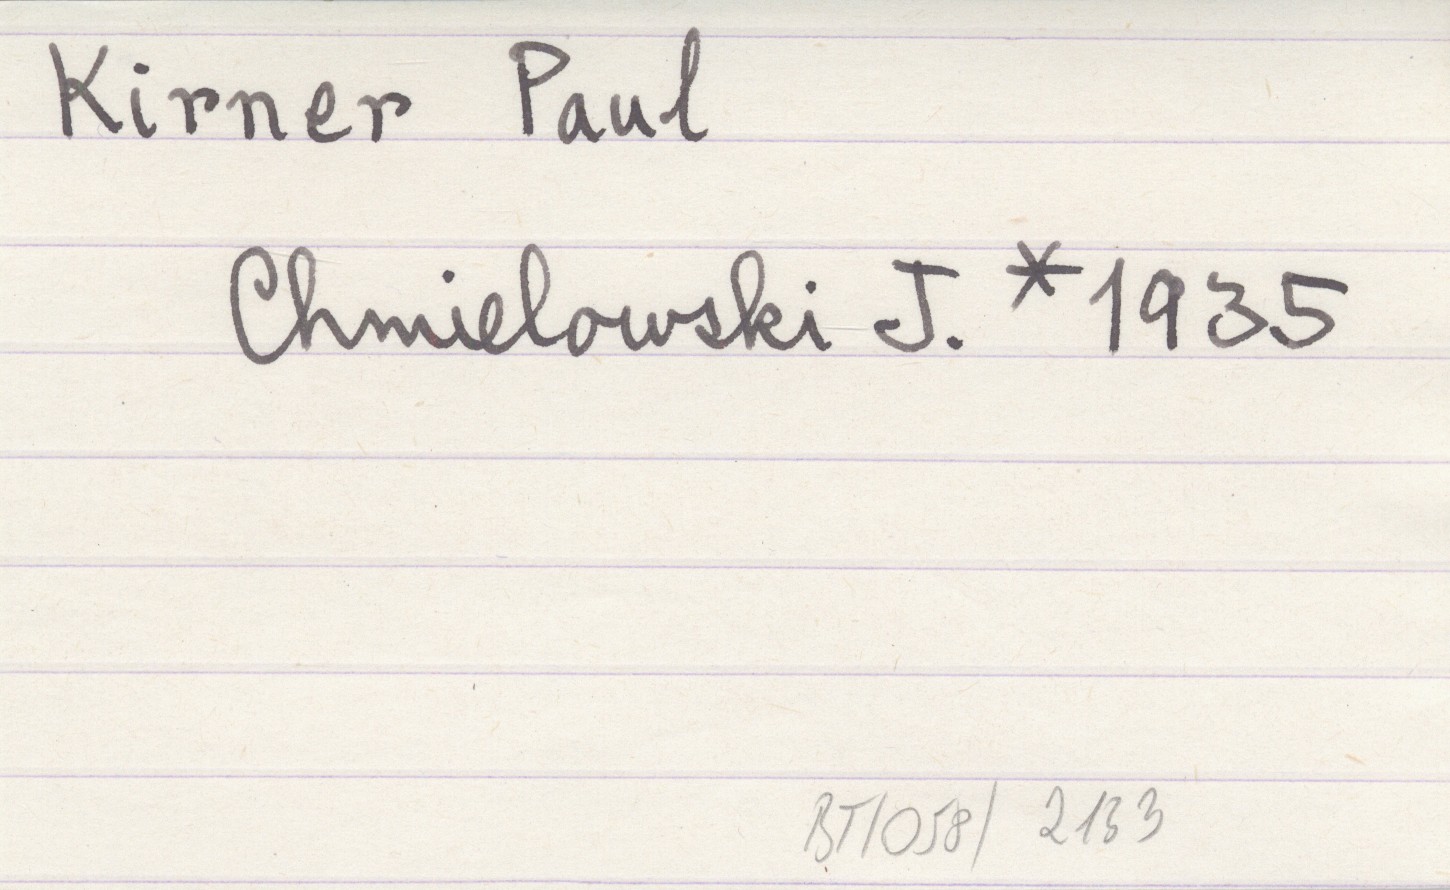 Kirner Paul
Chmielowski J. *1935
BT/058/ 2133